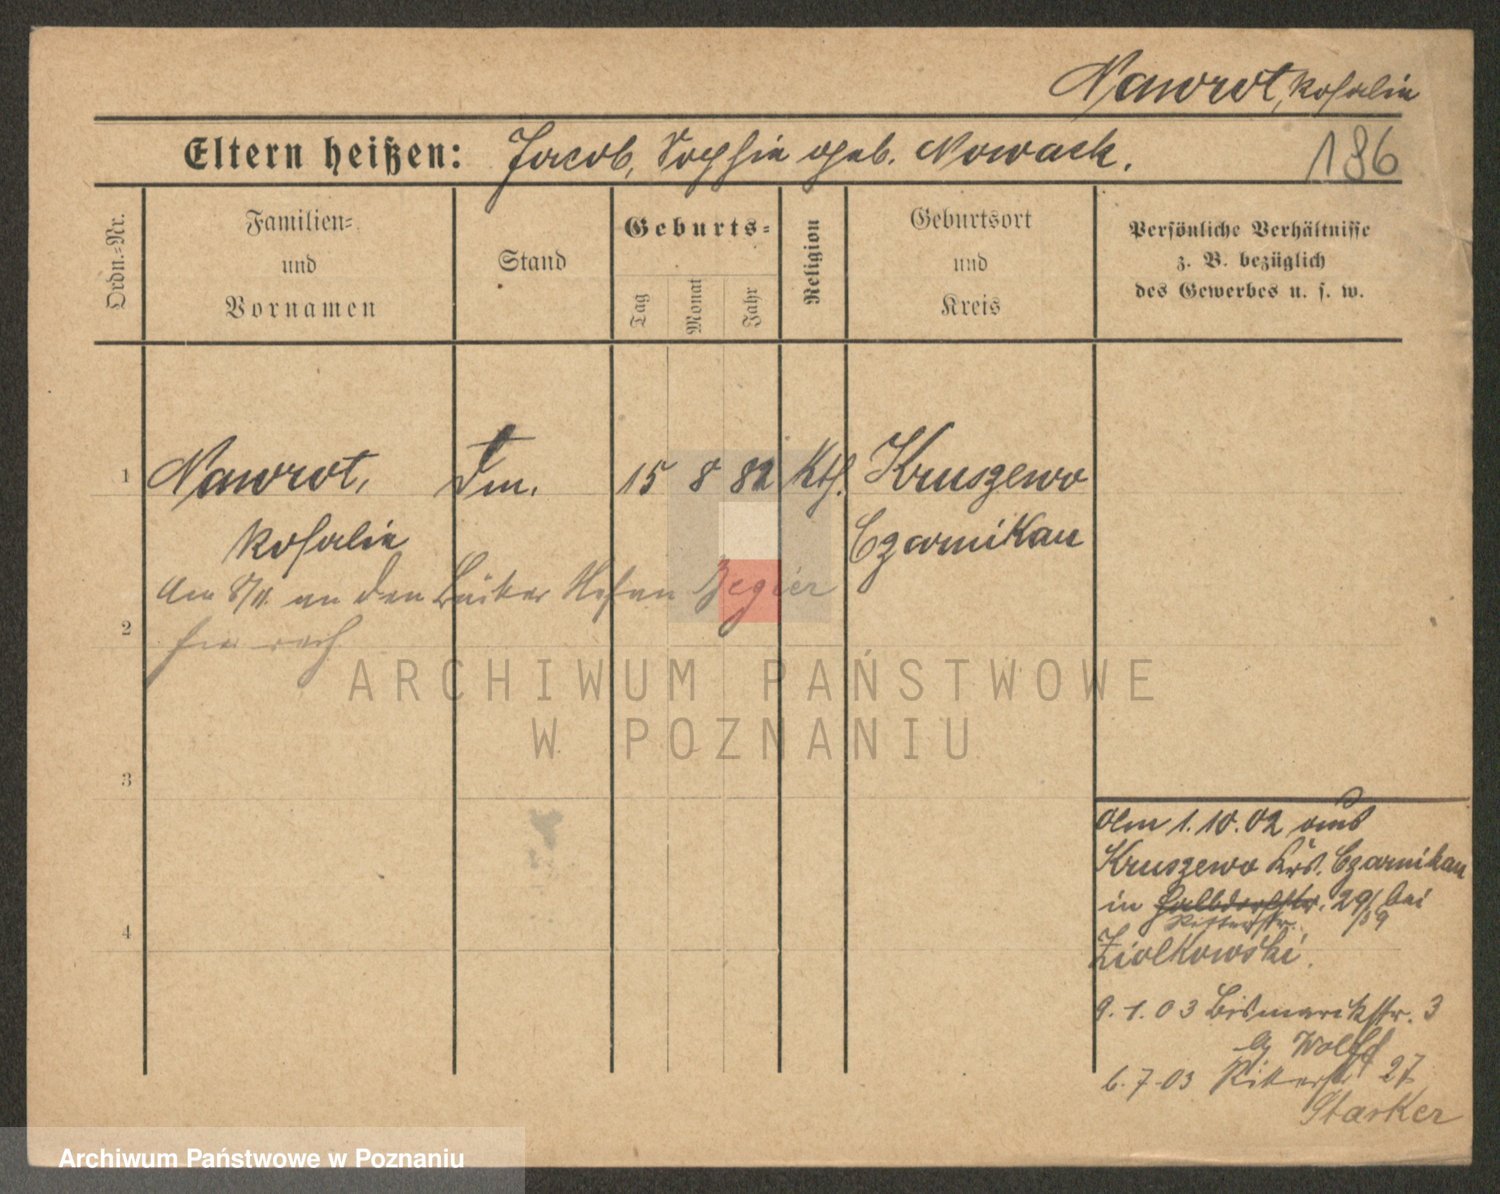 Nawrot, Rosalie
Eltern heißen: Jacob, Sophie geb. Nowack.
186
Ordn.-Nr.
Familien-
und
Vornamen
Stand
Geburts-
Tag
Monat
Jahr
Religion
Geburtsort
und
Kreis
Persönliche Verhältnisse
z. B. bezüglich
des Gewerbes u. s. w.
1
Nawrot, Dm. 15 8 82 Kth. Kruszewo
Rosalie Czarnikau
Am 8/11. an den Bäcker Zegier
2
3
4
Am 1.10.02 aus
Kruszewo Krs. Czarnikau
in Halbdorfstr. 29/ bei
Ritterstr. /39
Ziolkowski.
9.1.03 Bismarckstr. 3
by Wolff
6.7.03 Ritterstr 27
Starker
ARCHIWUM PAŃSTWOWE
W POZNANIU
Archiwum Państwowe w Poznaniu